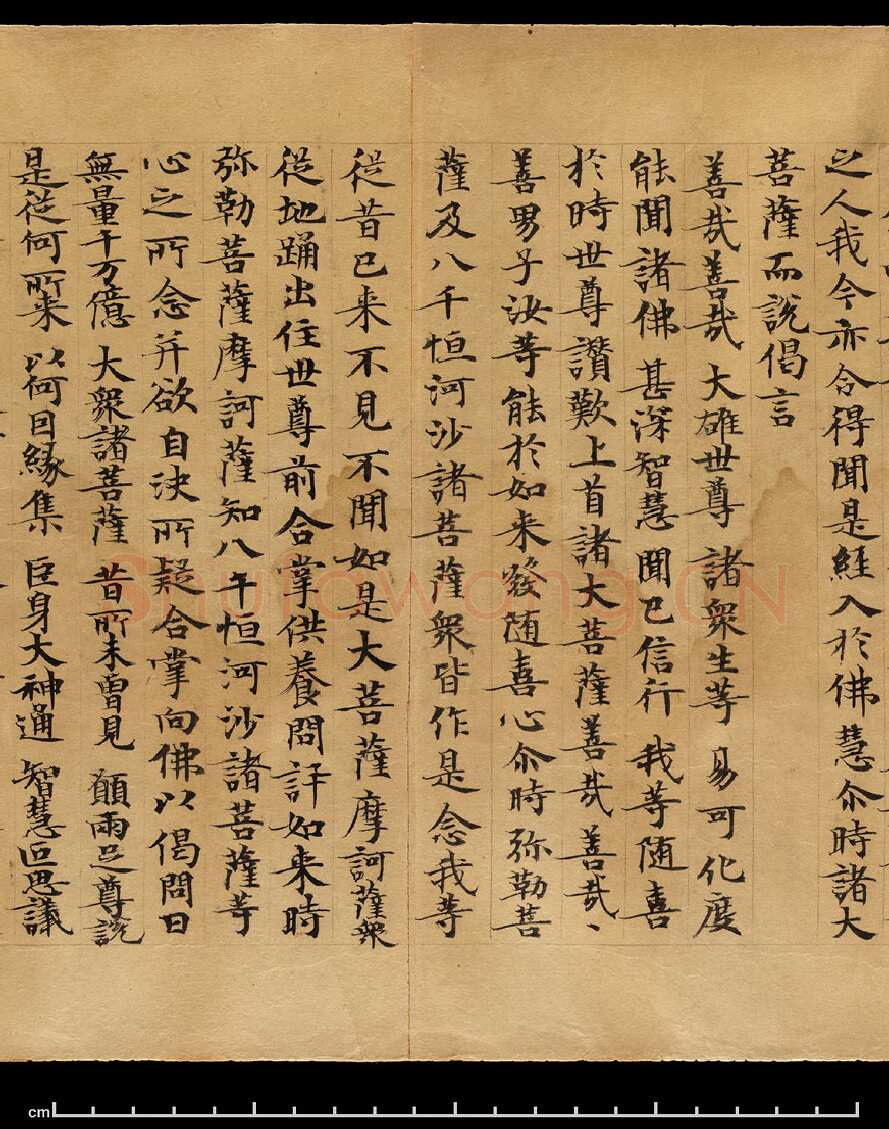 之人我今亦令得聞是經入於佛慧尒時諸大
菩薩而說偈言
善㦲善㦲 大雄世尊 諸衆生等 易可化度
能聞諸佛 甚深智慧 聞已信行 我等随喜
於時世尊讃歎上首諸大菩薩善㦲善㦲、
善男子汝等能於如来發随喜心尒時弥勒菩
薩及八千恒河沙諸菩薩衆皆作是念我等
従昔已来不見不聞如是大菩薩摩訶薩衆
従地踊出住世尊前合掌供養問訊如来時
弥勒菩薩摩訶薩知八千恒河沙諸菩薩等
心之所念并欲自決所疑合掌向佛以偈問曰
無量千万億 大衆諸菩薩 昔所未曽見 願兩足尊說
是従何所来 以何因緣集 巨身大神通 智慧叵思議
Shufawang.CN
cm